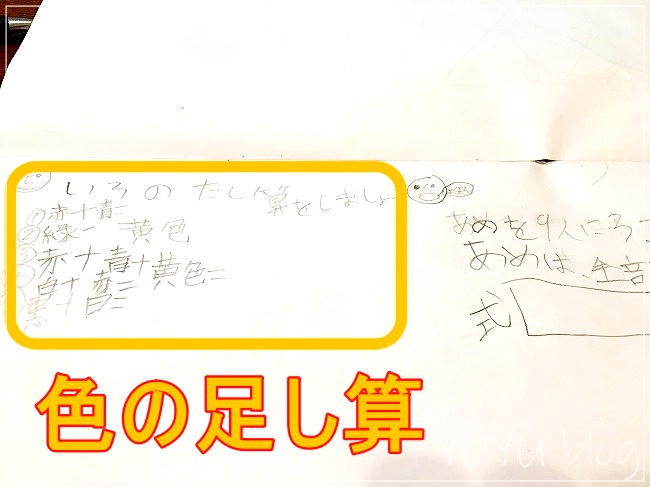 いろのたし算をしましょー
①赤+青=
②緑ー 黄色
③赤+青+黄色=
白+赤=
黒+白=
あめを9人に3つ
あめは、全部
式
色の足し算
YUYU blog